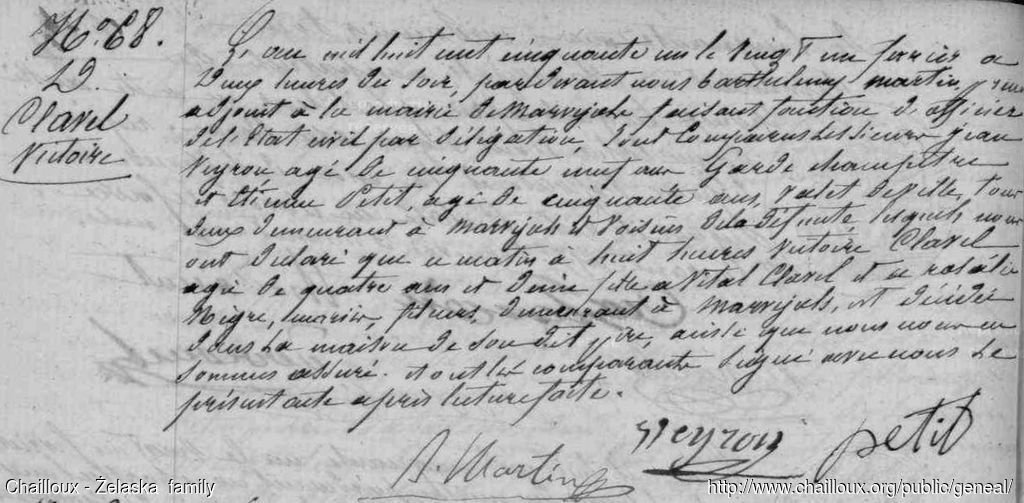 N° 68.
D.
Clavel
Victoire
L'an mil huit cent cinquante un le vingt un fevrier a
Deux heures du soir, par Devant nous Barthelemy Martin, premier
adjoint à la mairie de Marvejols faisant fonction d'officier
del'Etat civil par Délégation, sont Comparus Les sieurs Jean
Veyron agé de cinquante neuf ans Garde champêtre
et Etienne Petit, agé de cinquante ans, valet de ville, tous
deux demeurant à Marvejols et voisins dela défunte, lesquels nous
ont déclaré que ce matin à huit heures Victoire Clavel
agée de quatre ans et demie fille a Vital Clavel et de rosalie
Nègre, mariés, fileurs, demeurant à Marvejols, est décédée
dans la maison de son dit père, ainsi que nous nous en
sommes assuré. et ont les comparants signé avec nous le
présent acte après lecture faite.
Veyron petit
B. Martin
Chailloux - Żelaska family
http://www.chailloux.org/public/geneal/